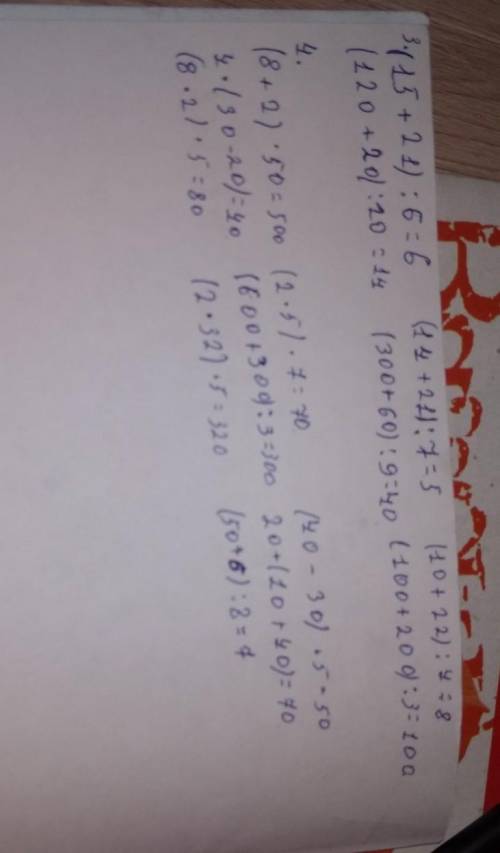 3. (15 + 21) : 6 = 6 (14 + 21) : 7 = 5 (10 + 22) : 4 = 8
(120 + 20) : 10 = 14 (300 + 60) : 9 = 40 (100 + 200) : 3 = 100
4.
(8 + 2) · 50 = 500 (2 · 5) · 7 = 70 (40 - 30) · 5 = 50
4 · (30 - 20) = 40 (600 + 300) : 3 = 300 20 + (10 + 40) = 70
(8 · 2) · 5 = 80 (2 · 32) · 5 = 320 (50 + 6) : 8 = 7